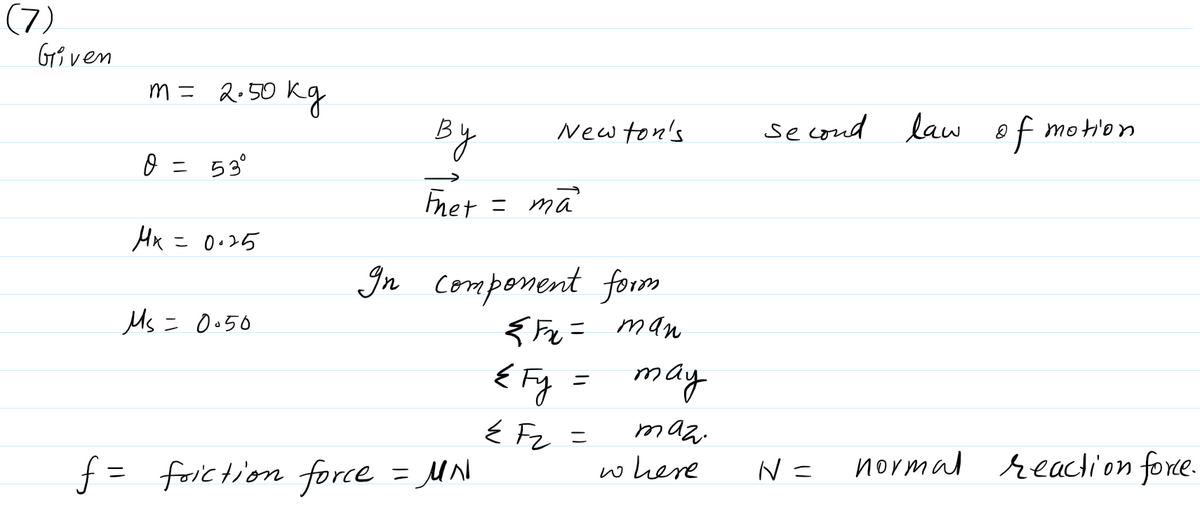 (7)
Given
m = 2.50 kg
By Newton's second law of motion
θ = 53°
F⃗net = ma⃗
μk = 0.25
In component form
μs = 0.50
ΣFx = max
ΣFy = may
ΣFz = maz.
f = friction force = μN where N = normal reaction force.